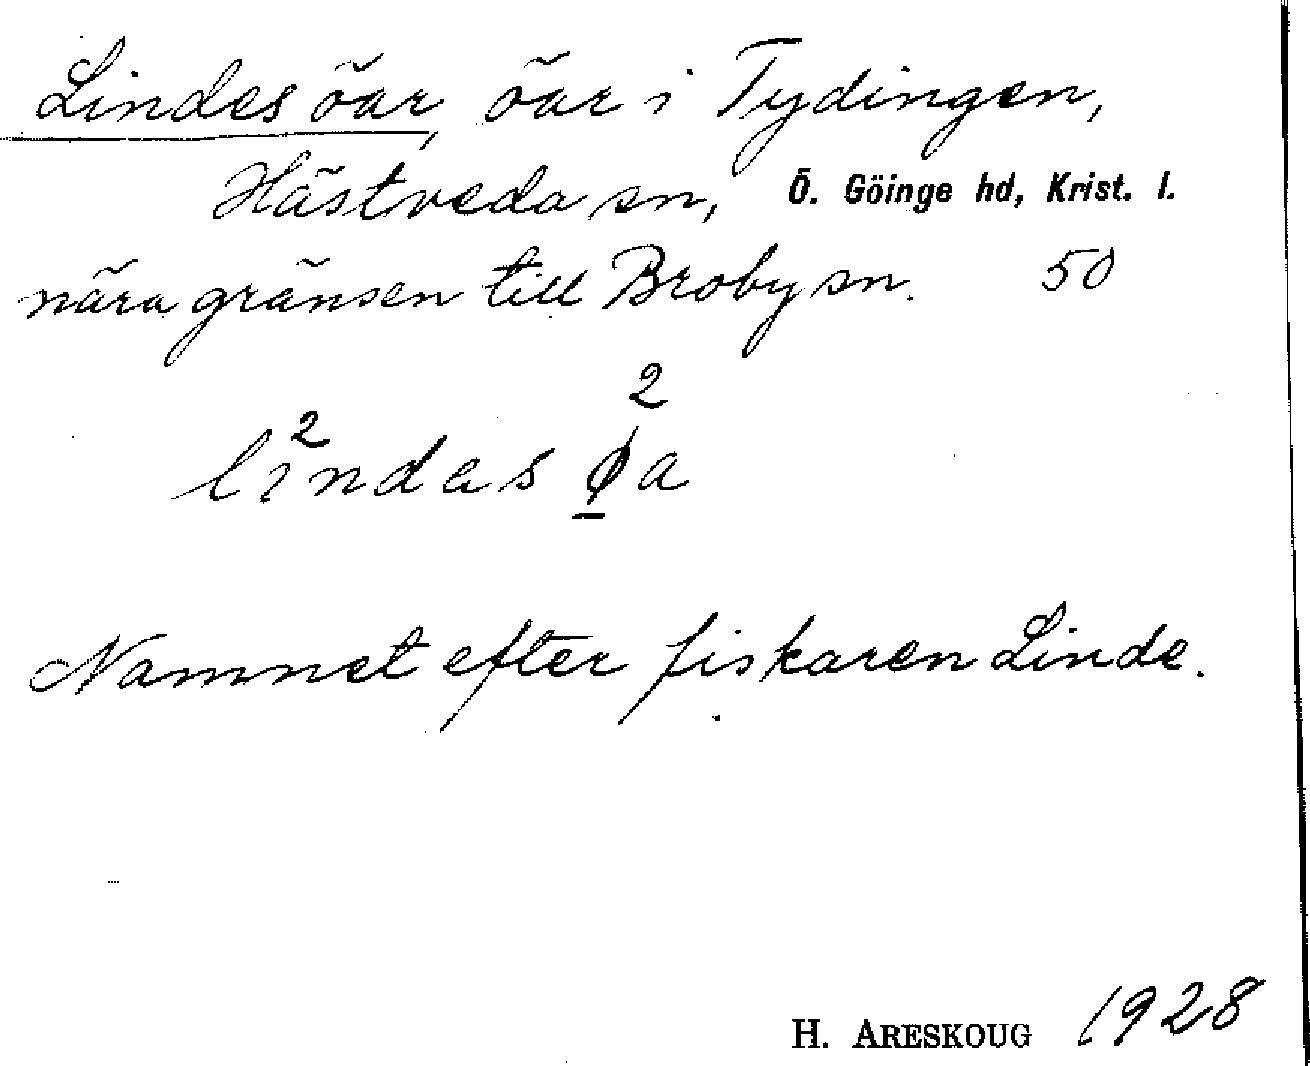 Lindes öar, öar i Tydingen,
Hästveda sn, Ö. Göinge hd, Krist. l.
nära gränsen till Broby sn. 50
li²ndas ø²a
Namnet efter fiskaren Linde.
H. ARESKOUG 1928